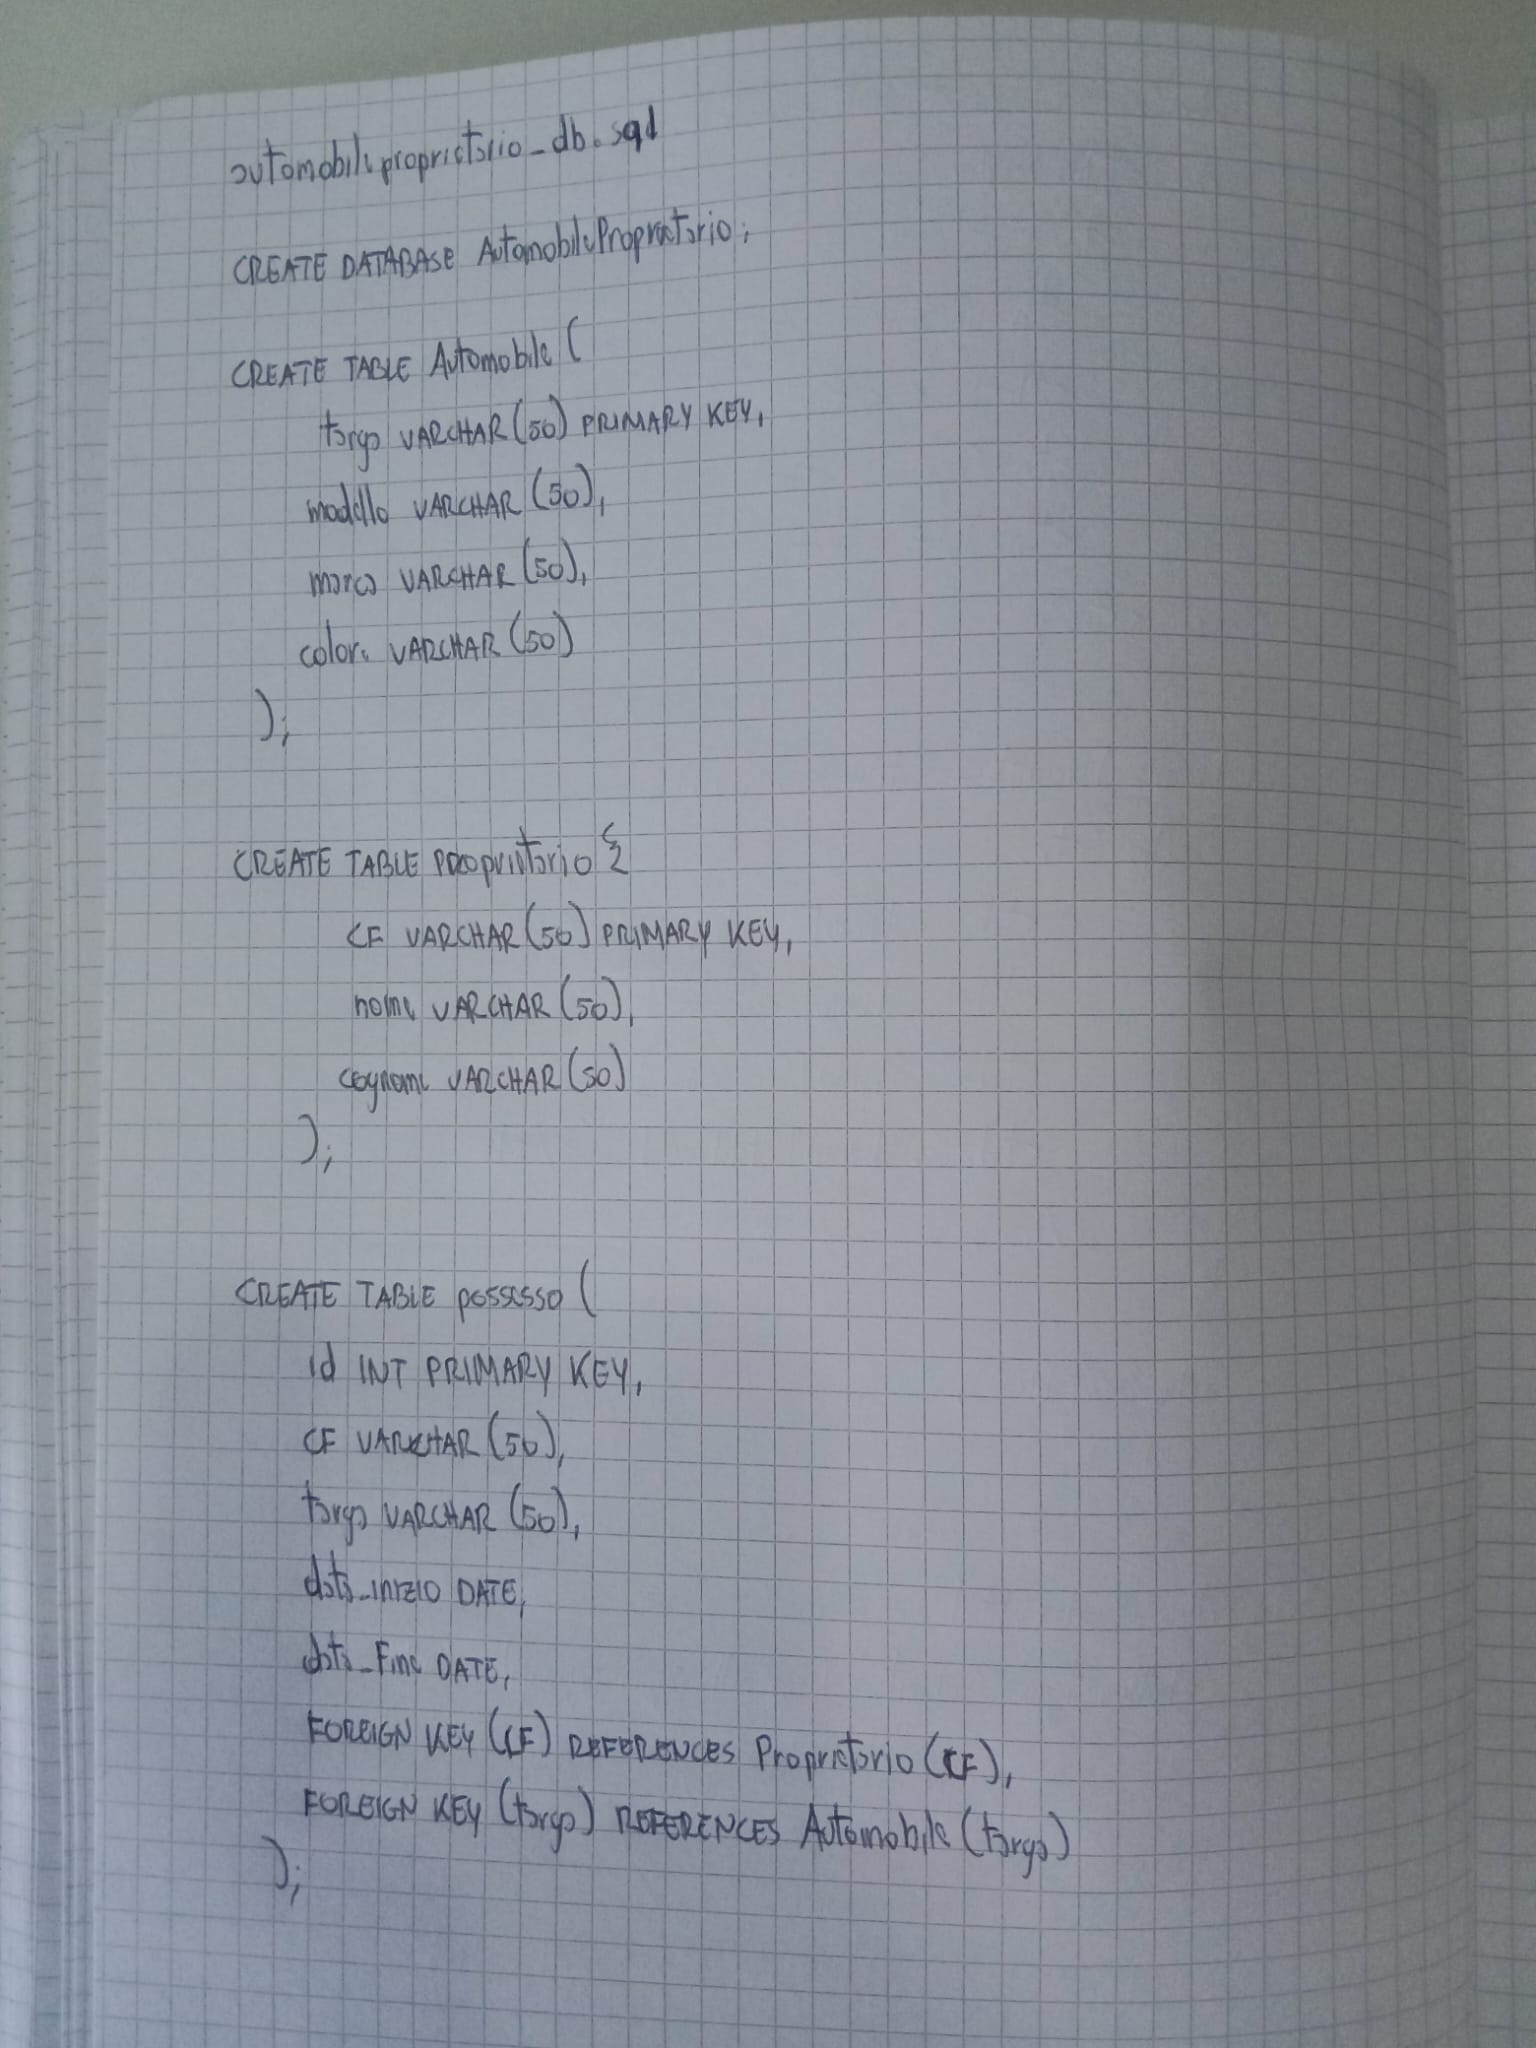 automobileproprietario_db.sql
CREATE DATABASE AutomobileProprietario;
CREATE TABLE Automobile (
targa VARCHAR(50) PRIMARY KEY,
modello VARCHAR (50),
marca VARCHAR (50),
colore VARCHAR (50)
);
CREATE TABLE Proprietario {
CF VARCHAR (50) PRIMARY KEY,
nome VARCHAR (50),
cognome VARCHAR (50)
);
CREATE TABLE possesso (
id INT PRIMARY KEY,
CF VARCHAR (50),
targa VARCHAR (50),
data_inizio DATE,
data_Fine DATE,
FOREIGN KEY (CF) REFERENCES Proprietario (CF),
FOREIGN KEY (targa) REFERENCES Automobile (targa)
);